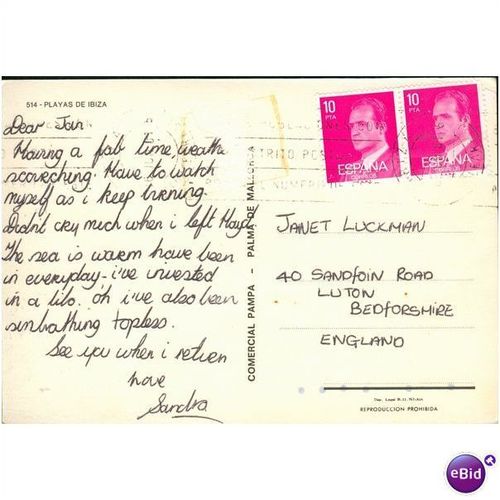 514 - PLAYAS DE IBIZA
Dear Jan
Having a fab time, weather
scoreching. Have to watch
myself as i keep burning.
Didnt cry much when i left
The sea is warm have been
in everyday - i've invested
in a lilo. Oh i've also been
sunbathing topless.
See you when i return
Love
Sandra
COMERCIAL PAMPA - PALMA DE MALLORCA
10
PTA
ESPAÑA
CORREOS
10
PTA
ESPAÑA
CORREOS
JANET LUCKMAN
40 SANDFOIN ROAD
LUTON
BEDFORSHIRE
ENGLAND
REPRODUCCION PROHIBIDA
eBid